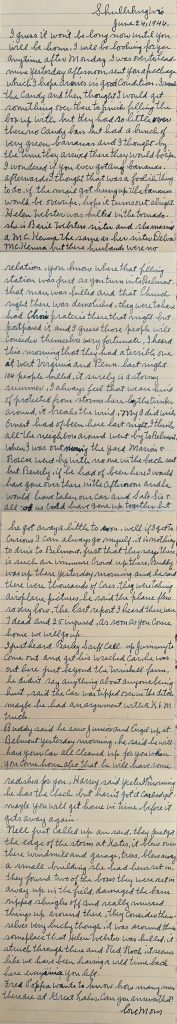 Shullsburg, Wis
June 24, 1944.
I guess it wont be long now until you
will be home, I will be looking for you
anytime after Monday. I was over to Lead
mine yesterday afternoon, sent you a package
which I hope arrives in good condition. I made
the Candy and then thought I would get
something over there to finish filling the
box up with, but they had so little over
there, no Candy bars but had a bunch of
very green bananas and I thought by
the time they arrived there they would be ripe
I wondered if you ever getting bananas
afterwards I thought that was a foolish thing
to do. if the mail got hung up the bananas
would be overripe, hope it turns out alright
Helen Webster was killed in the tornado
she is Basil Websters sister and she married
a McKenna the same as her sister Velma
McKenna but their husbands were no
relation, you know where that filling
station was just as you turn into Belmont
that man was killed and that Church
right there was demolished, they were to have
had Choir practice there that night but
postponed it and I guess those people will
consider themselves very fortunate, I heard
this morning that they had a terrible one
at West Virginia and Penn. last night
149 people killed, it surely is a stormy
summer, I always feel that we are kind
of protected from storms here by the timber
around, it breaks the wind. My I did wish
Ernest had of been here last night, I think
all the neighbors around went up to Belmont,
when I was out mowing the yard Mason &
Roscoe went by with no one in the back seat
but Beverly, if he had of been here I would
have gone over there in the afternoon and he
would have taken our car and
all of us could have gone up together but
he got away a little to soon, well if I get to
Curious I can always go myself, it is nothing
to drive to Belmont, just that they say there
is such an immense crowd up there. Buddy
was up there yesterday morning and he said
there were thousands of cars, they were taking
airplane pictures, he said the plane flew
so very low, the last report I heard there were
7 dead and 25 injured, as soon as you come
home we will go up.
I just heard Call up for Jimmy to
come out and get his wrecked car, he was
out here just beyond the Wimball farm.
he didn't say anything about anyone being
hurt, said the car was tipped over in the ditch
maybe he had an argument with a K & M
truck
Buddy said he saw Junior and Engel up at
Belmont yesterday morning, he said he will
have your car all Cleaned up for you when
you come home, also that he will have some
radishes for you. Harvey said yesterday morning
he has the check but hasn't got it Cashed yet
maybe you will get home in time before it
gets away again.
Nell just called up and said, they just got
the edge of the storm at Kates, it blew over
their windmill and garage, trees, blew away
a small building she had hens set in.
they found two of the boxes they were set in
away up in the field, damaged the barn
ripped shingles off and really messed
things up around there, they consider them-
selves very lucky though, it was around there
someplace that Helen Webster was killed, it
struck through there and Red Rock, it seems
like we have been having a wild time back
here ever since you left.
Fred Oppa wants to know how many men
there are at Great Lakes, Can you answer that?
Love Mom